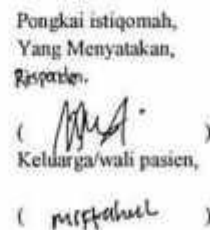 Pongkai istiqomah,
Yang Menyatakan,
Responden.
( )
Keluarga/wali pasien,
( miftahul )